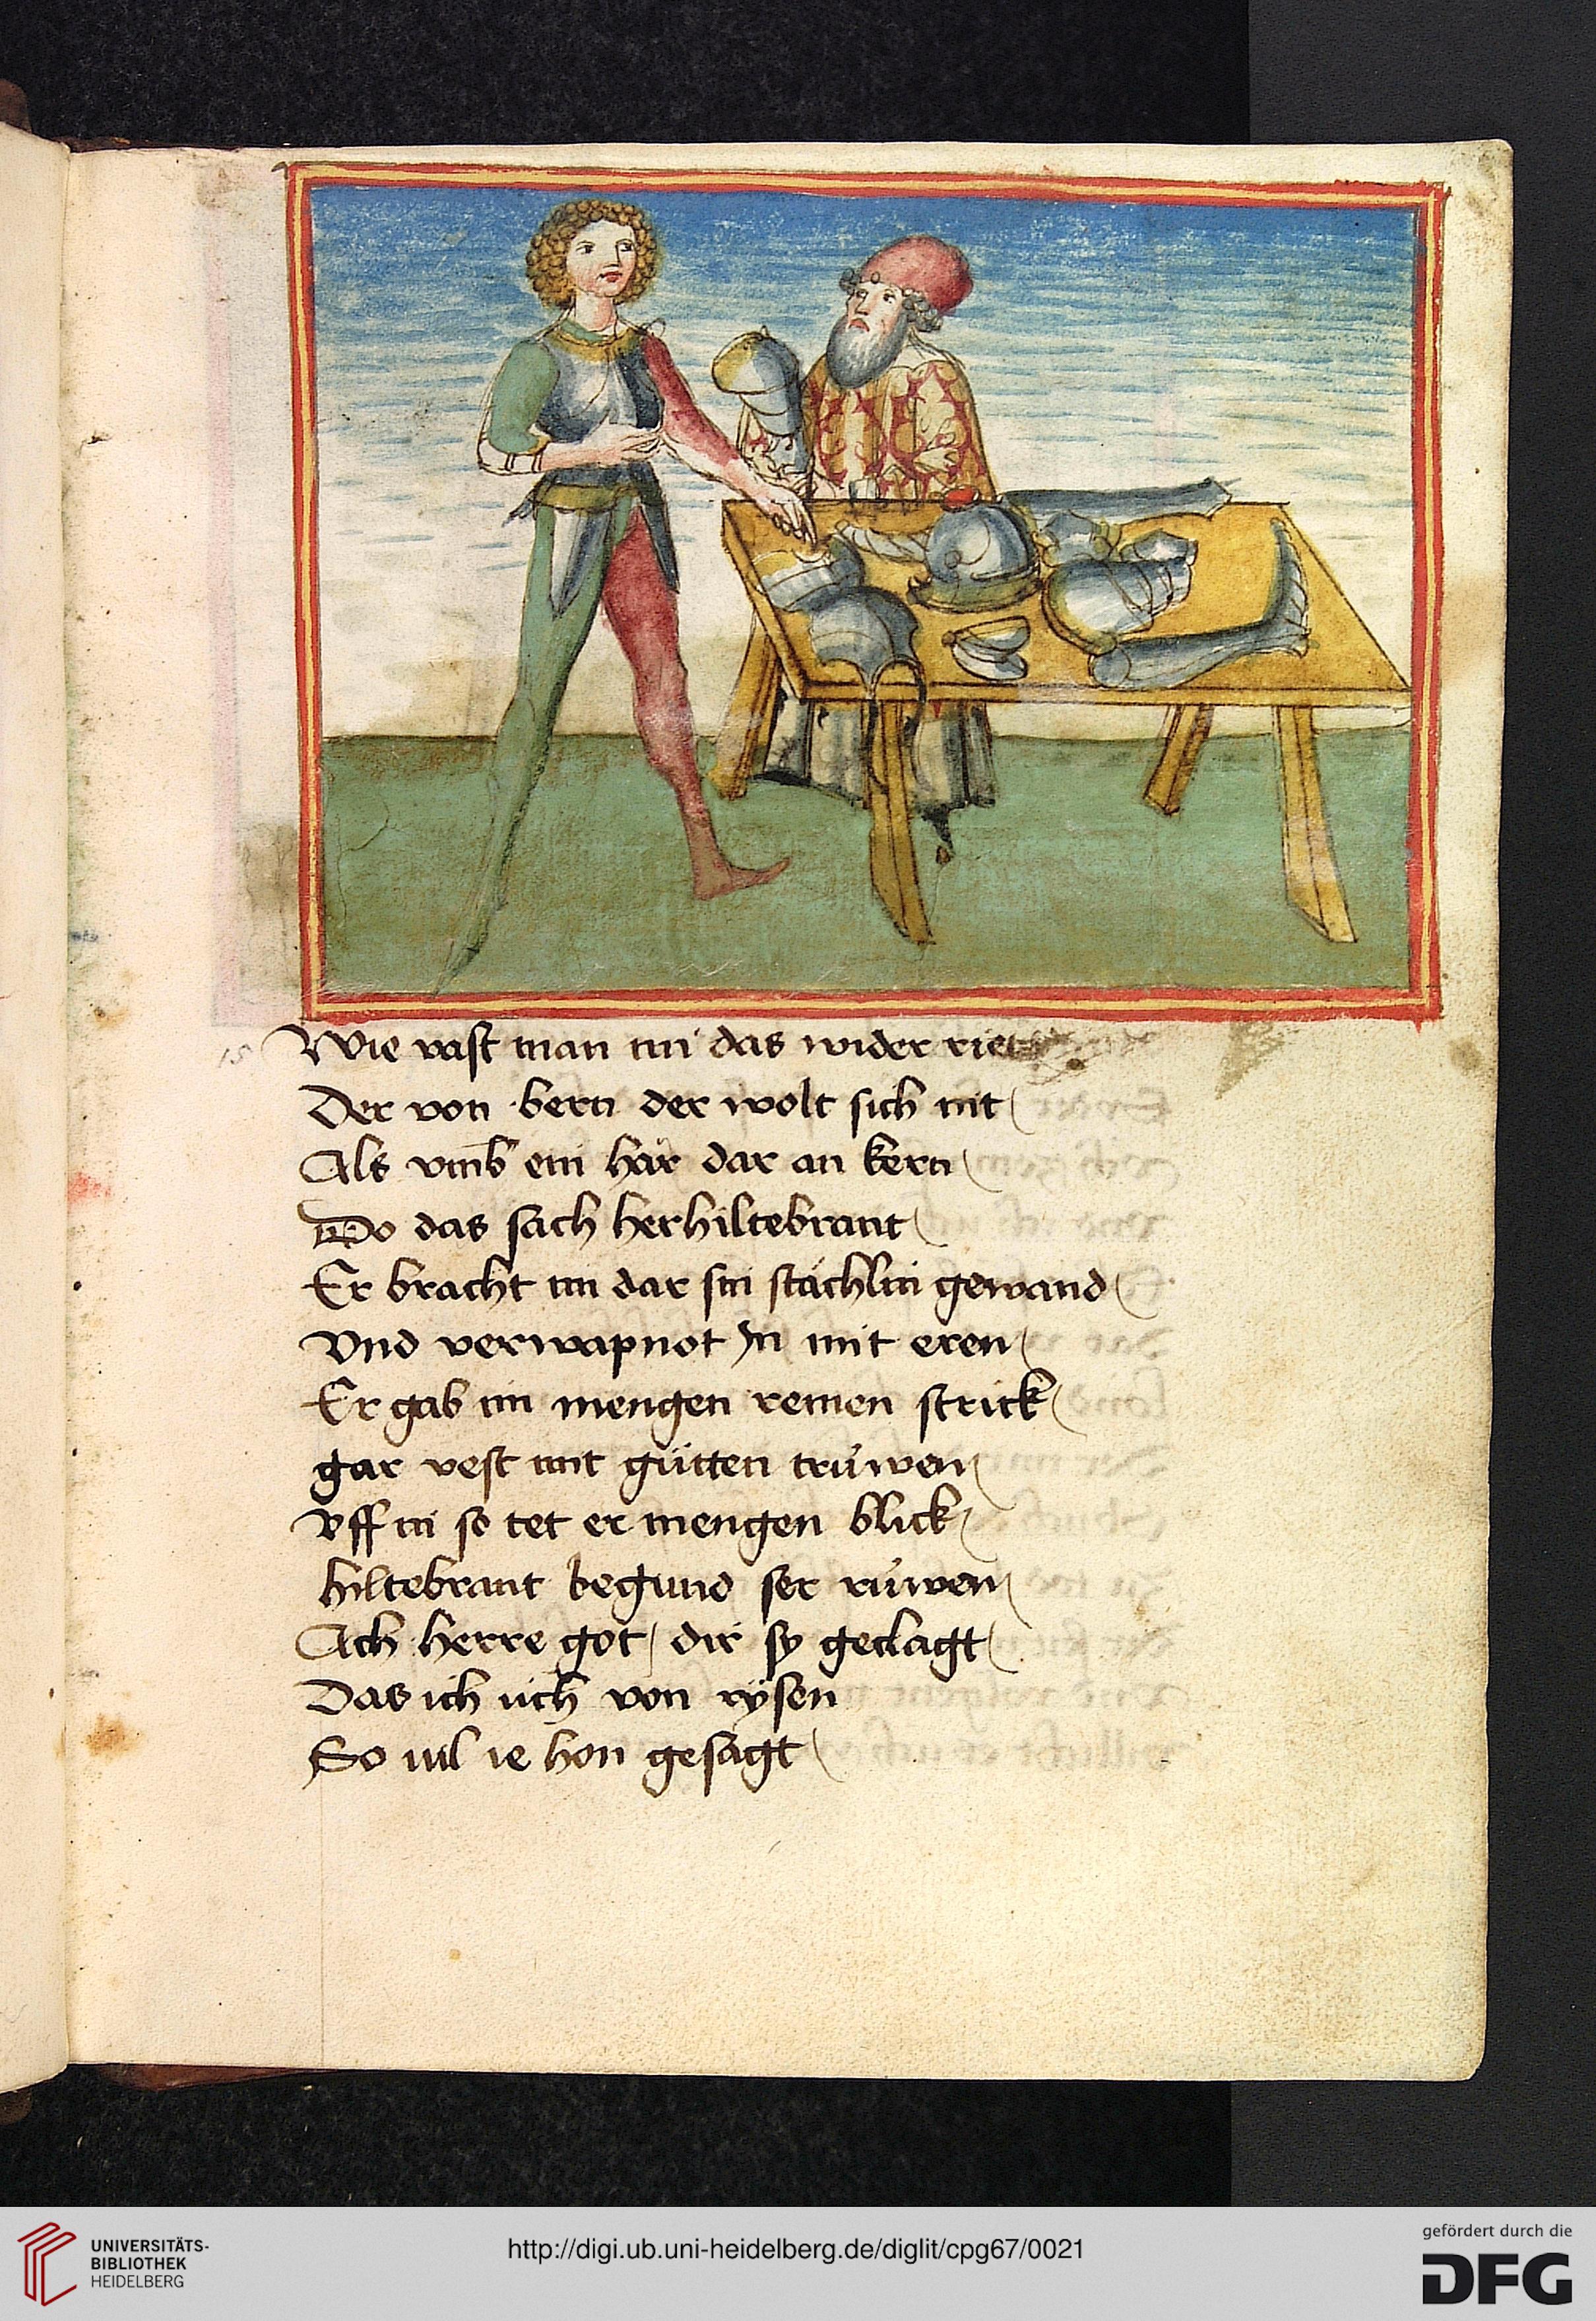 15
Wie vast man im das wider riet
Der von bern der wolt sich nit
Als vmb ein här dar an kern
Do das sach her hiltebrant
Er bracht im dar sin stächlin gewand
Vnd verwapnot In mit eren
Er gab im mengen remen strick
gar vest mit gütten trüwen
Vff in so tet er mengen blick
hiltebrant begund ser rüwen
Ach herre got / dir sy geclagt
Das ich üch von rysen
So uil ie hon gesagt
UNIVERSITÄTS-
BIBLIOTHEK
HEIDELBERG
http://digi.ub.uni-heidelberg.de/diglit/cpg67/0021
gefördert durch die
DFG